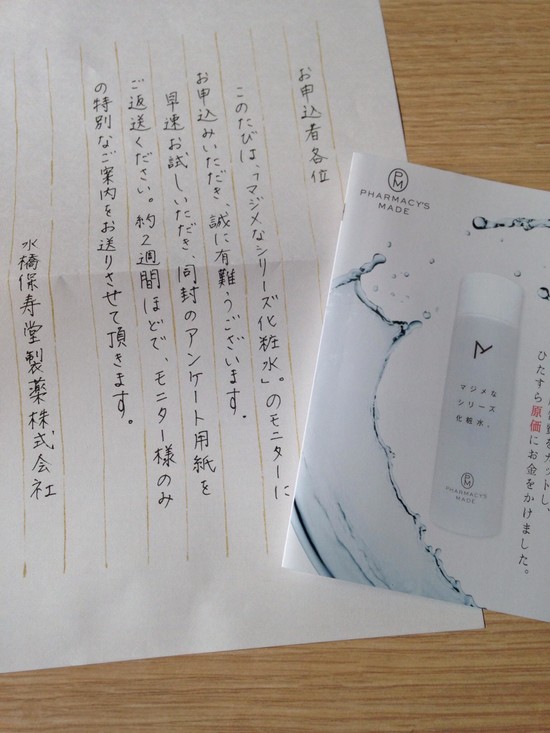 お申込者各位
このたびは、「マジメなシリーズ化粧水」。のモニターに
お申込みいただき、誠に有難うございます。
早速お試しいただき、同封のアンケート用紙を
ご返送ください。約2週間ほどで、モニター様のみ
の特別なご案内をお送りさせて頂きます。
水橋保寿堂製薬株式会社
PM
PHARMACY'S
MADE
マジメな
シリーズ
化粧水.
PM
PHARMACY'S
MADE
ひたすら原価にお金をかけました。